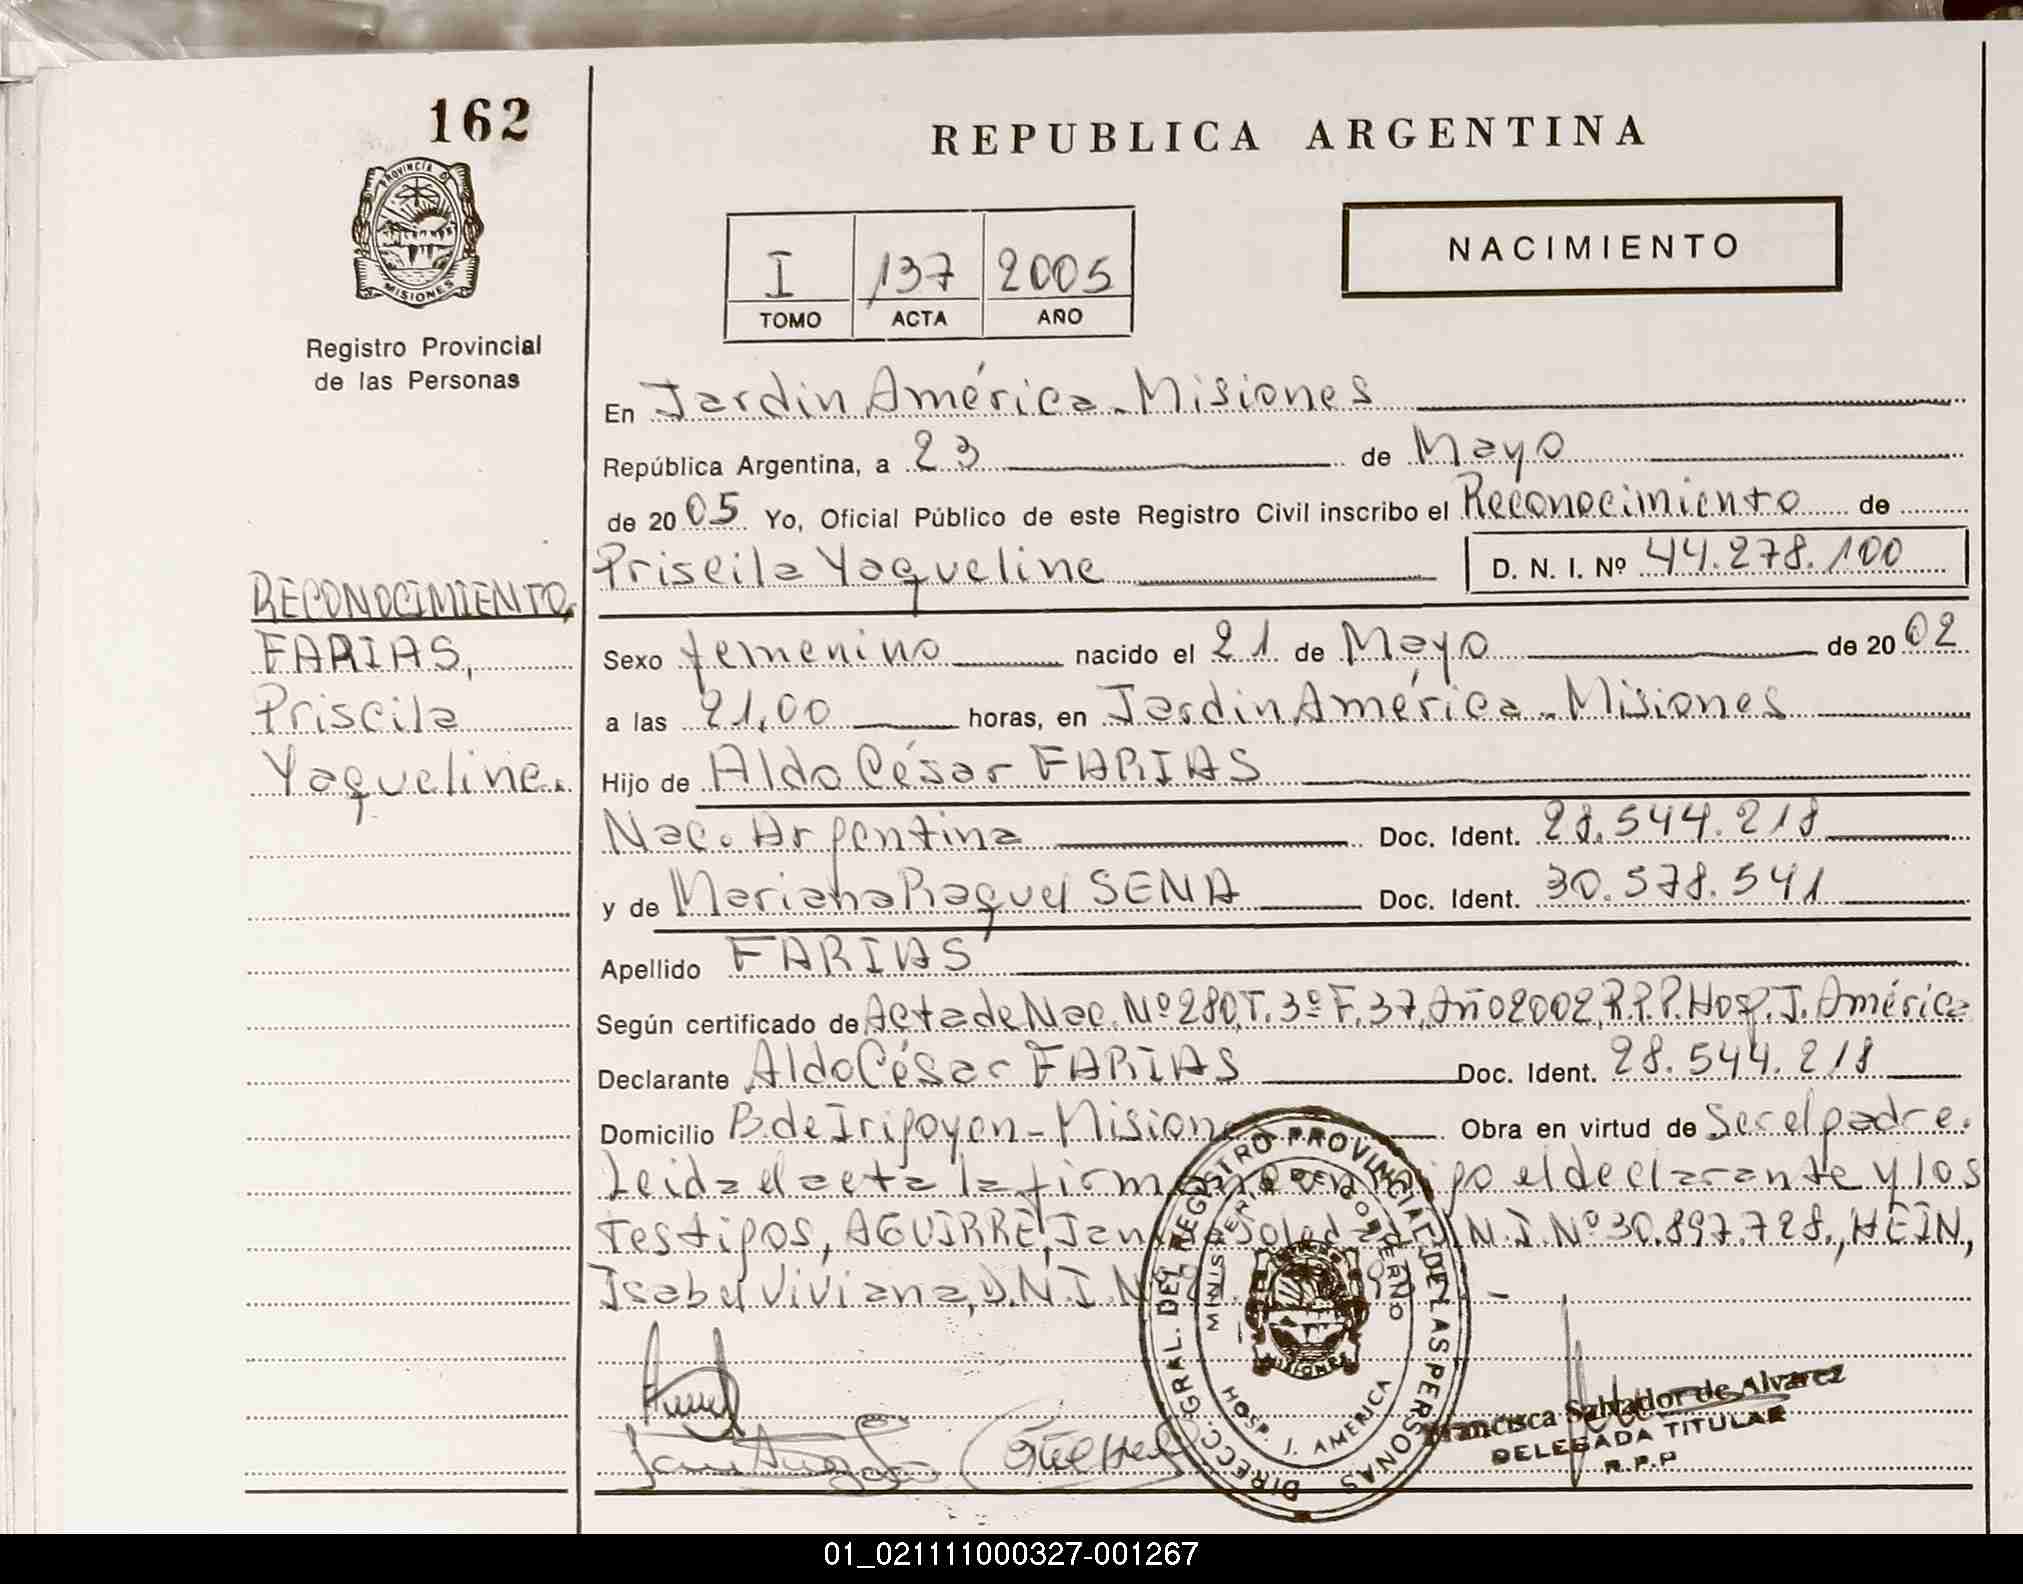 162
REPUBLICA ARGENTINA
PROVINCIA D
MISIONES
Registro Provincial
de las Personas
I 137 2005
TOMO ACTA AÑO
NACIMIENTO
En Jardin América - Misiones
República Argentina, a 23 de Mayo
de 2005 Yo, Oficial Público de este Registro Civil inscribo el Reconocimiento de
Priscila Yaqueline D. N. I. Nº 44.278.100
RECONOCIMIENTO,
FARIAS,
Priscila
Yaqueline.
Sexo femenino nacido el 21 de Mayo de 2002
a las 21,00 horas, en Jardin América - Misiones
Hijo de Aldo César FARIAS
Nac. Argentina Doc. Ident. 28.544.218
y de Mariana Raquel SENA Doc. Ident. 30.578.541
Apellido FARIAS
Según certificado de Acta de Nac. Nº 280, T. 3º F. 37, Año 2002, R.P.P. Hosp. J. América
Declarante Aldo César FARIAS Doc. Ident. 28.544.218
Domicilio B. de Irigoyen - Mision Obra en virtud de Ser el padre.
Leida el acta la firm el declarante y los
Testigos, AGUIRRE, Soledad N.I. Nº 30.897.728., HEIN,
Isabel Viviana, D.N.I. N
DIRECC. GRAL. DEL REGISTRO PROVINCIAL DE LAS PERSONAS
MINISTERIO DE GOBIERNO
MISIONES
HOSP. J. AMERICA
Francisca Salvador de Alvarez
DELEGADA TITULAR
R.P.P
01_021111000327-001267